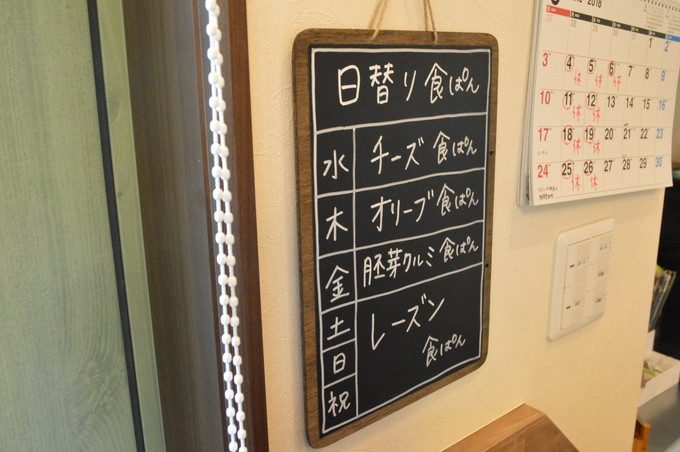 日替り食ぱん
水 チーズ食ぱん
木 オリーブ食ぱん
金 胚芽クルミ食ぱん
土 日 祝 レーズン
食ぱん
2018
27 1 2
3 4休 5休 6休 7 8 9
10 11休 12休 13 14 15 16
17 18休 19休 20 21 22 23
24 25休 26休 27 28 29 30